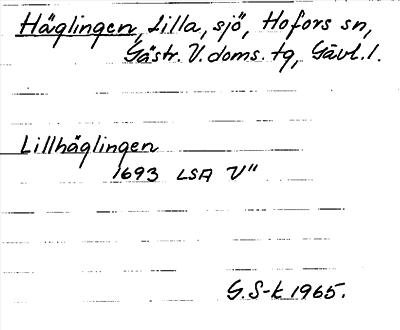 Häglingen, Lilla, sjö, Hofors sn,
Gästr. V. doms. tg, Gävl. l.
Lillhäglingen
1693 LSA V"
G. S-k 1965.